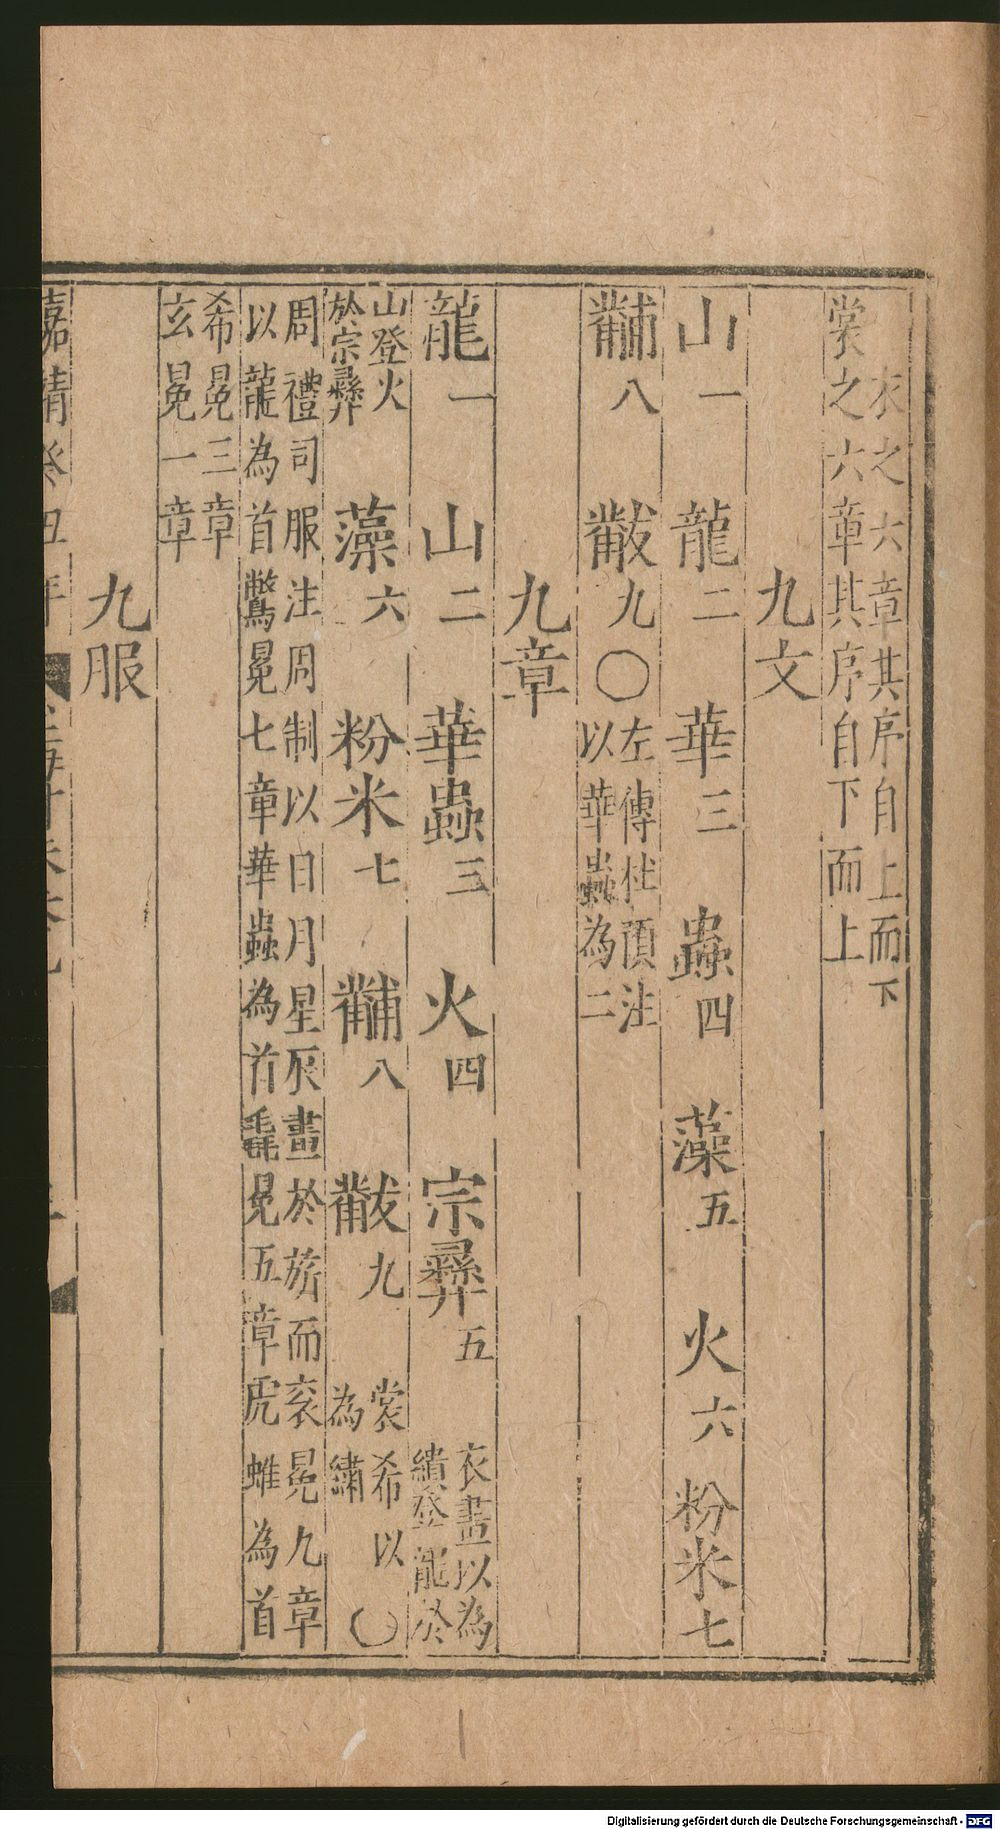 衣之六章其序自上而下
裳之六章其序自下而上
九文
山一 龍二 華三 蟲四 藻五 火六 粉米七
黼八 黻九〇左傳杜預注
以華蟲為二
九章
龍一 山二 華蟲三 火四 宗彝五 衣畫以為
繢登龍於
山登火
於宗彝
藻六 粉米七 黼八 黻九 裳希以
為繡
〇
周禮司服注周制以日月星辰畫於旂而衮冕九章
以龍為首鷩冕七章華蟲為首毳冕五章虎蜼為首
希冕三章
玄冕一章
九服
嘉靖癸丑年
Digitalisierung gefördert durch die Deutsche Forschungsgemeinschaft - DFG